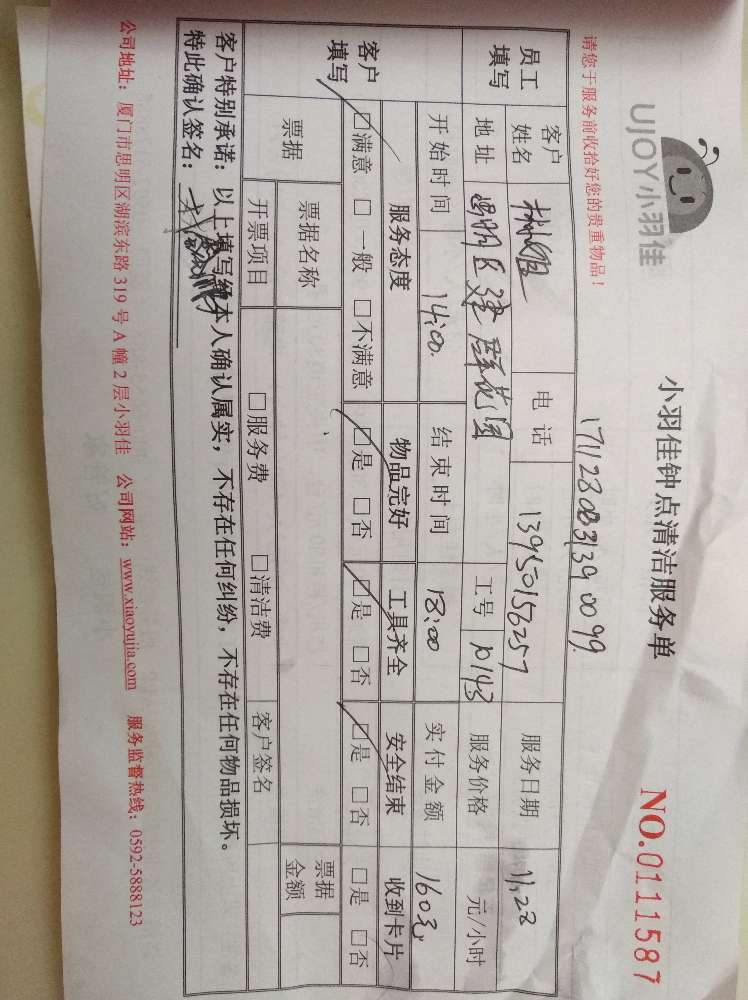 UJOY小羽佳
小羽佳钟点清洁服务单
NO.0111587
请您于服务前收拾好您的贵重物品！
171123003139 0099
员工填写 客户姓名 电话 13950156257 服务日期 11.28
地址 思明区建群花园 工号 10143 服务价格 元/小时
开始时间 14:00 结束时间 18:00 实付金额 160元
客户填写 服务态度 物品完好 工具齐全 安全结束 收到卡片
□满意 □一般 □不满意 □是 □否 □是 □否 □是 □否 □是 □否
票据 票据名称 票据金额
开票项目 □服务费 □清洁费 客户签名
客户特别承诺：以上填写经本人确认属实，不存在任何纠纷，不存在任何物品损坏。
特此确认签名：
公司地址：厦门市思明区湖滨东路 319 号 A 幢 2 层小羽佳 公司网站：www.xiaoyujia.com 服务监督热线：0592-5888123